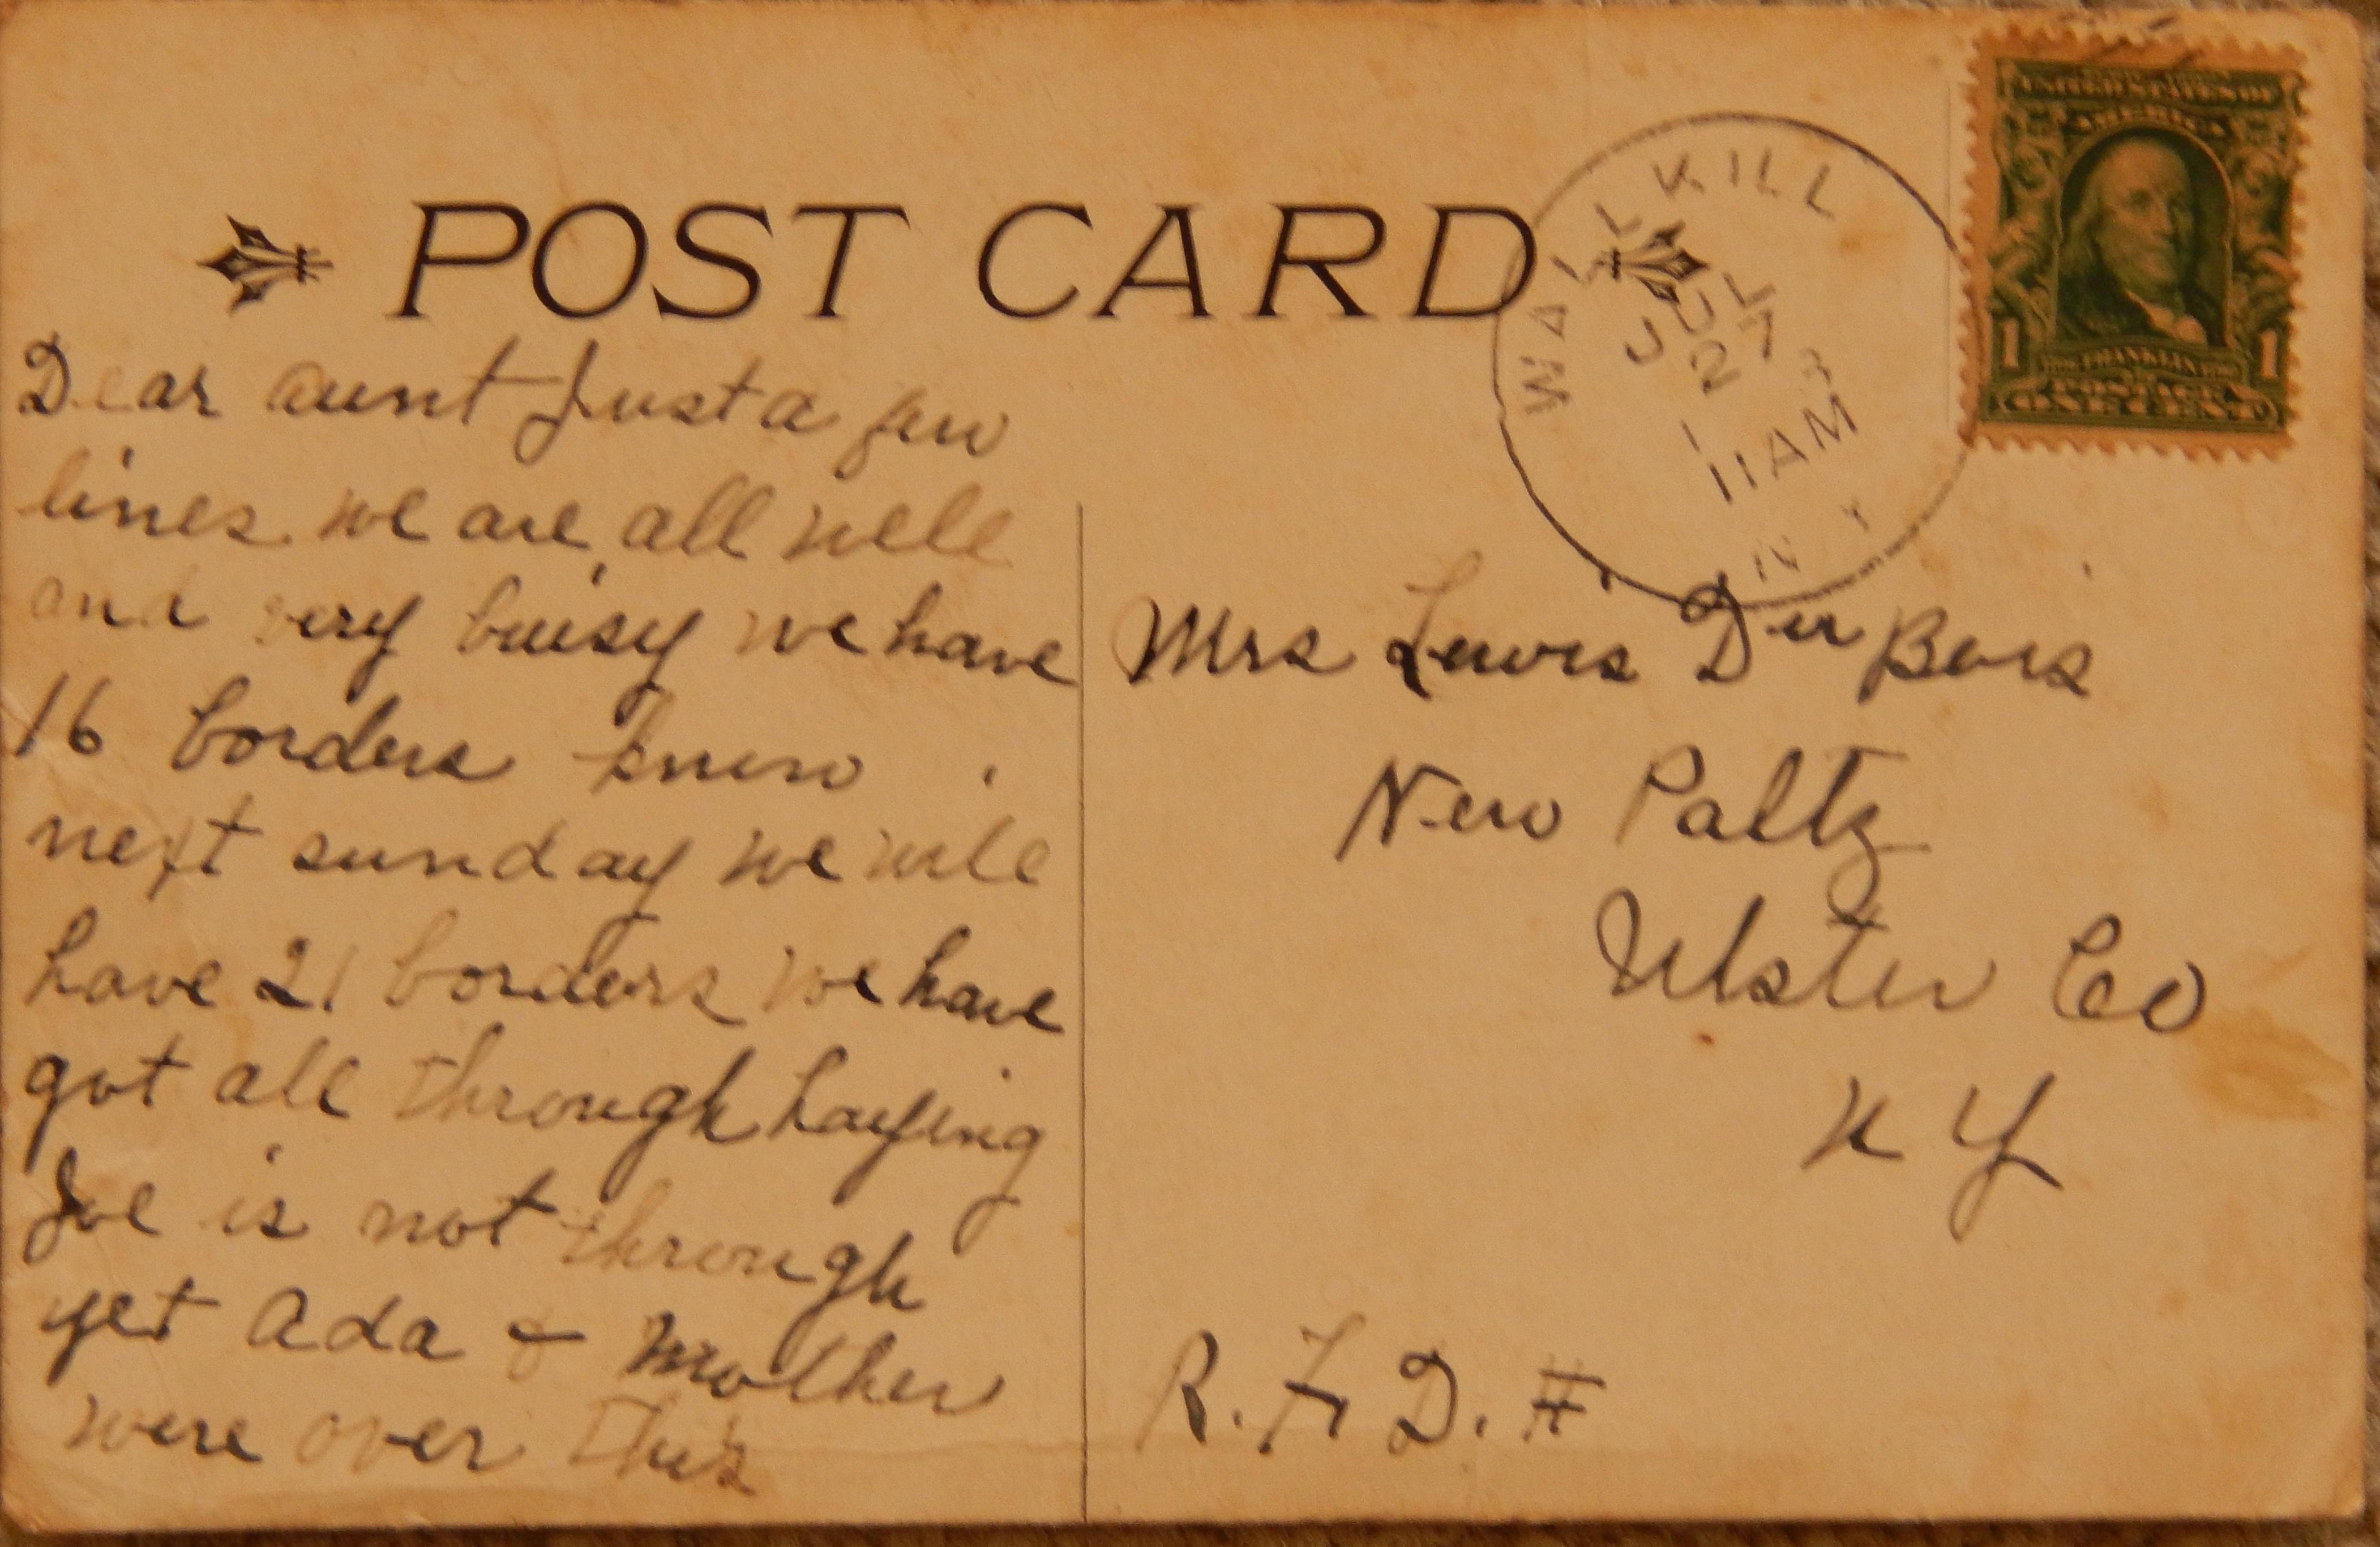 POST CARD
WALLKILL
JUL
27
11 AM
N Y
UNITED STATES OF
AMERICA
1 FRANKLIN 1
POSTAGE
ONE CENT
Dear aunt Just a few
lines we are all well
and very buisy we have
16 borders
next sunday we will
have 21 borders we have
got all through haying
Joe is not through
yet Ada & Mother
were over this
Mrs Lewis Du Bois
New Paltz
Ulster Co
N Y
R. F. D. #